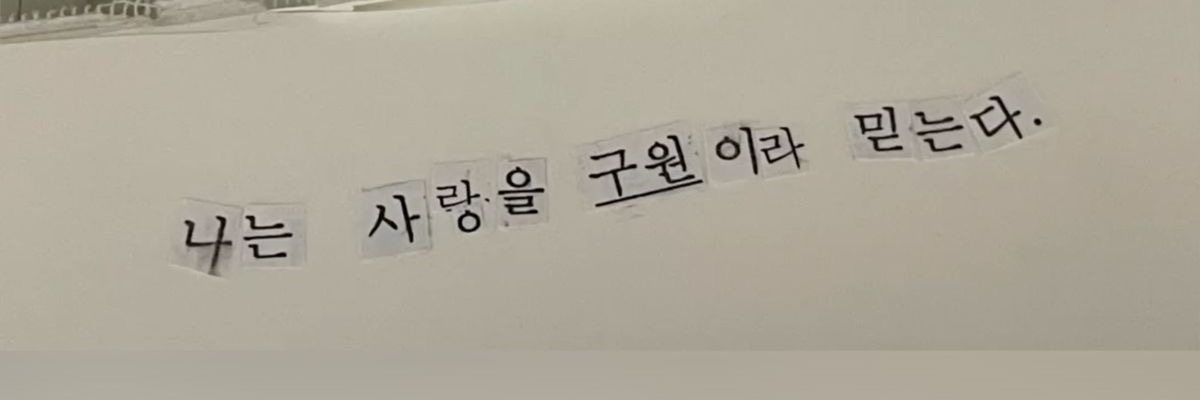 나는 사랑을 구원이라 믿는다.